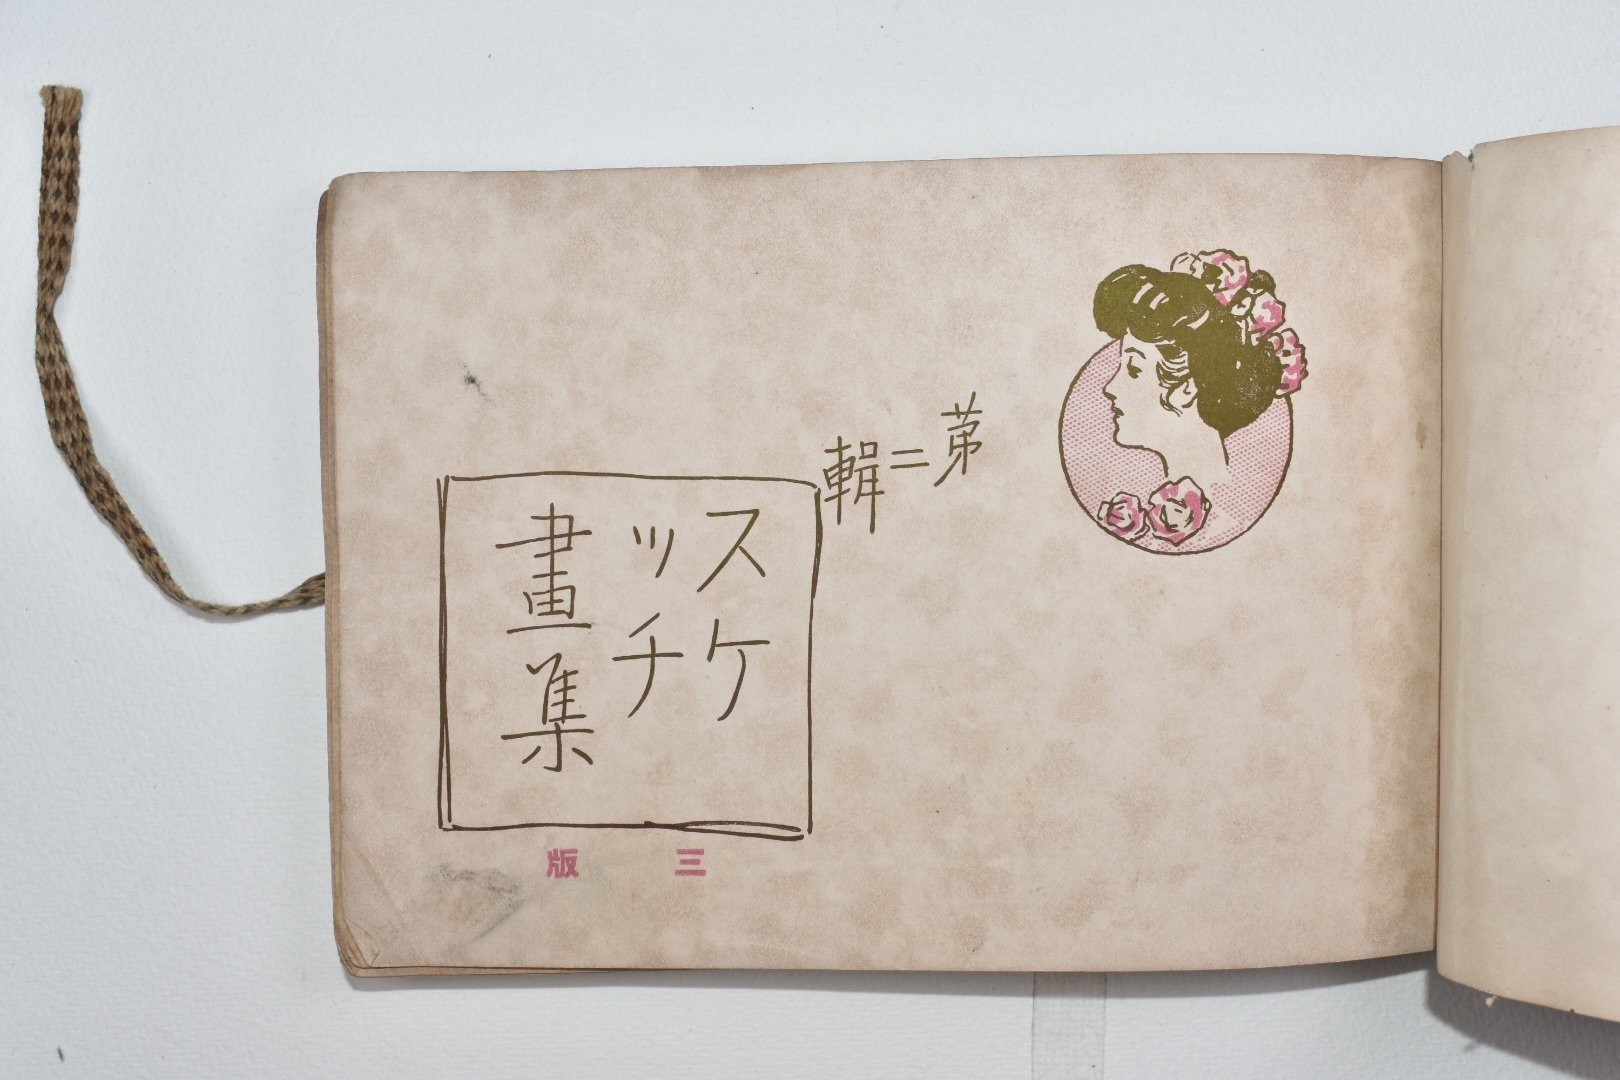 第二輯
スケ
ッチ
畫集
三版